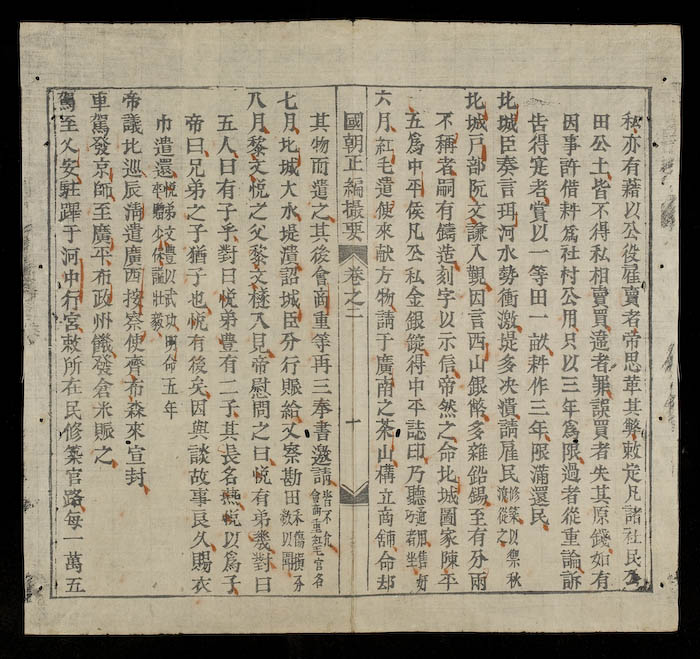 私亦有藉以公役雇賣者帝思革其弊敕定凡諸社民
田公土皆不得私相賣買違者罪誤買者失其原錢如有
因事許借耕爲社村公用只以三年爲限過者從重論訴
告得寔者賞以一等田一畝耕作三年限滿還民
北城臣奏言珥河水勢衝激堤多决潰請雇民修築以禦秋潦從之
北城戸部阮文謙入覲因言西山銀幣多雜鉛錫至有分兩
不稱者嗣有鑄造刻字以示信帝然之命北城圖家陳平
五爲中平侯凡公私金銀錠得中平誌印乃聽通用售奸巧者坐
六月紅毛遣使來献方物請于廣南之茶山構立商舖命却
國朝正編撮要 卷之二 十
其物而遣之其後會商重等再三奉書邀請皆不許會商重紅毛官名
七月北城大水堤潰詔城臣分行賑給又察勘田禾傷損分数以聞
八月黎文悦之父黎文檖入見帝慰問之曰悦有弟幾對曰
五人曰有子乎對曰悦弟豊有二子其長名燕悦以爲子
帝曰兄弟之子猶子也悦有後矣因與談故事良久賜衣
巾遣還悦弟文豊以武功明命五年卒贈少保謚壯毅
帝議北巡辰淸遣廣西按察使齊布森來宣封
車駕發京師至廣平布政州饑發倉米賑之
駕至乂安駐蹕于河中行宮敕所在民修築官路每一萬五